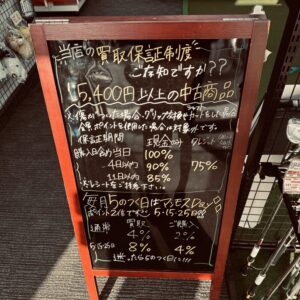 当店の買取保証制度
ご存知ですか??
5,400円以上の中古商品
※傷がついた場合、グリップ交換やカットをした商品
ポイントを使用した場合は対象外です。
保証期間 現金 クレジット
購入日含め当日 100%
4日以内 90% 75%
11日以内 85%
※レシートをご持参下さい。
毎月5のつく日はマモスDay
ポイント2倍です!! 5・15・25日
買取 ご購入
通常 4% 2%
5・15・25日 8% 4%
迷ったら5のつく日に!!!